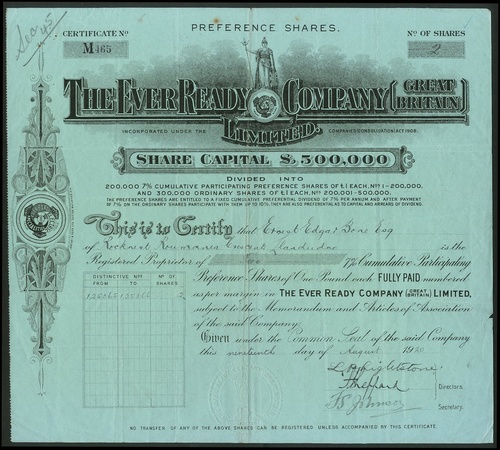 Sec 45
PREFERENCE SHARES.
CERTIFICATE Nº
M465
Nº OF SHARES
2
THE EVER READY COMPANY (GREAT BRITAIN)
LIMITED.
INCORPORATED UNDER THE COMPANIES (CONSOLIDATION) ACT 1908.
SHARE CAPITAL £500,000
DIVIDED INTO
200,000 7% CUMULATIVE PARTICIPATING PREFERENCE SHARES OF £1 EACH, Nos 1-200,000,
AND 300,000 ORDINARY SHARES OF £1 EACH, Nos 200,001-500,000.
THE PREFERENCE SHARES ARE ENTITLED TO A FIXED CUMULATIVE PREFERENTIAL DIVIDEND OF 7% PER ANNUM AND AFTER PAYMENT
OF 7% ON THE ORDINARY SHARES PARTICIPATE WITH THEM UP TO 10%, THEY ARE ALSO PREFERENTIAL AS TO CAPITAL AND ARREARS OF DIVIDEND.
This is to Certify that Ernest Edgar Esq
of is the
Registered Proprietor of Two 7% Cumulative Participating
Preference Shares of One Pound each FULLY PAID numbered
as per margin in THE EVER READY COMPANY (GREAT BRITAIN) LIMITED,
subject to the Memorandum and Articles of Association
of the said Company.
Given under the Common Seal of the said Company
this nineteenth day of August 1920
DISTINCTIVE Nos
FROM TO
Nº OF SHARES
2
Directors.
Secretary.
NO TRANSFER OF ANY OF THE ABOVE SHARES CAN BE REGISTERED UNLESS ACCOMPANIED BY THIS CERTIFICATE